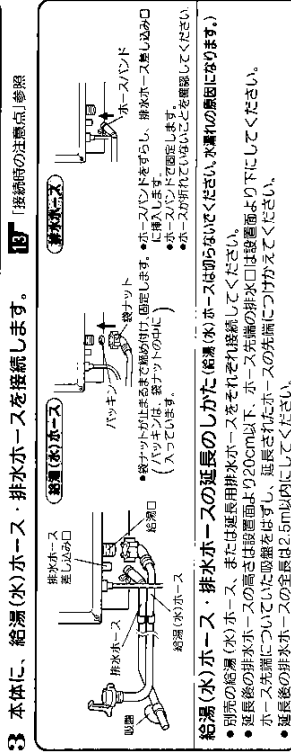 3 本体に、給湯(水)ホース・排水ホースを接続します。
13 「接続時の注意点」参照
排水ホース
差し込み口
排水ホース
給湯口
給湯(水)ホース
吸盤
給湯(水)ホース
パッキン
袋ナット
●袋ナットが止まるまで締め付け、固定します。
(パッキンは、袋ナットの中に
入っています。)
排水ホース
ホースバンド
●ホースバンドをずらし、排水ホース差し込み口
に挿入します。
●ホースバンドで固定します。
●ホースが折れていないことを確認してください。
給湯(水)ホース・排水ホースの延長のしかた(給湯(水)ホースは切らないでください。水漏れの原因になります。)
●別売の給湯(水)ホース、または延長用排水ホースをそれぞれ接続してください。
●延長後の排水ホースの高さは設置面より20cm以下、ホース先端の排水口は設置面より下にしてください。
ホース先端についていた吸盤をはずし、延長されたホースの先端につけかえてください。
●延長後の排水ホースの全長は2.5m以内にしてください。